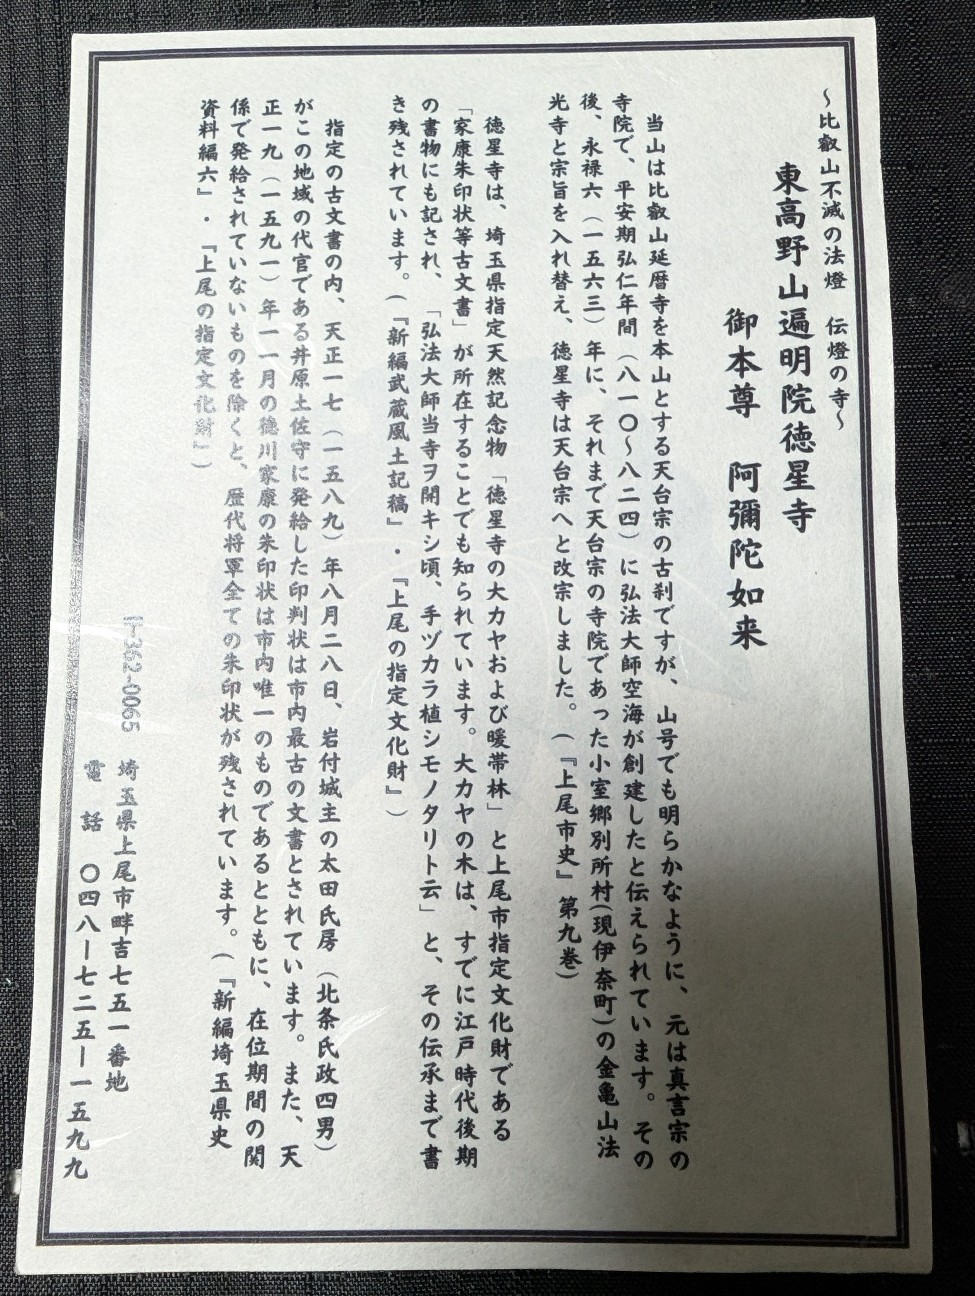 ～比叡山不滅の法燈　伝燈の寺～
東高野山遍明院徳星寺
御本尊　阿彌陀如来
当山は比叡山延暦寺を本山とする天台宗の古刹ですが、山号でも明らかなように、元は真言宗の
寺院で、平安期弘仁年間（八一〇～八二四）に弘法大師空海が創建したと伝えられています。その
後、永禄六（一五六三）年に、それまで天台宗の寺院であった小室郷別所村(現伊奈町)の金亀山法
光寺と宗旨を入れ替え、徳星寺は天台宗へと改宗しました。（『上尾市史』第九巻）
徳星寺は、埼玉県指定天然記念物「徳星寺の大カヤおよび暖帯林」と上尾市指定文化財である
「家康朱印状等古文書」が所在することでも知られています。大カヤの木は、すでに江戸時代後期
の書物にも記され、「弘法大師当寺ヲ開キシ頃、手ヅカラ植シモノタリト云」と、その伝承まで書
き残されています。（『新編武蔵風土記稿』・『上尾の指定文化財』）
指定の古文書の内、天正一七（一五八九）年八月二八日、岩付城主の太田氏房（北条氏政四男）
がこの地域の代官である井原土佐守に発給した印判状は市内最古の文書とされています。また、天
正一九（一五九一）年一一月の徳川家康の朱印状は市内唯一のものであるとともに、在位期間の関
係で発給されていないものを除くと、歴代将軍全ての朱印状が残されています。（『新編埼玉県史
資料編六』・『上尾の指定文化財』）
〒362-0065　埼玉県上尾市畔吉七五一番地
電　話　〇四八―七二五―一五九九